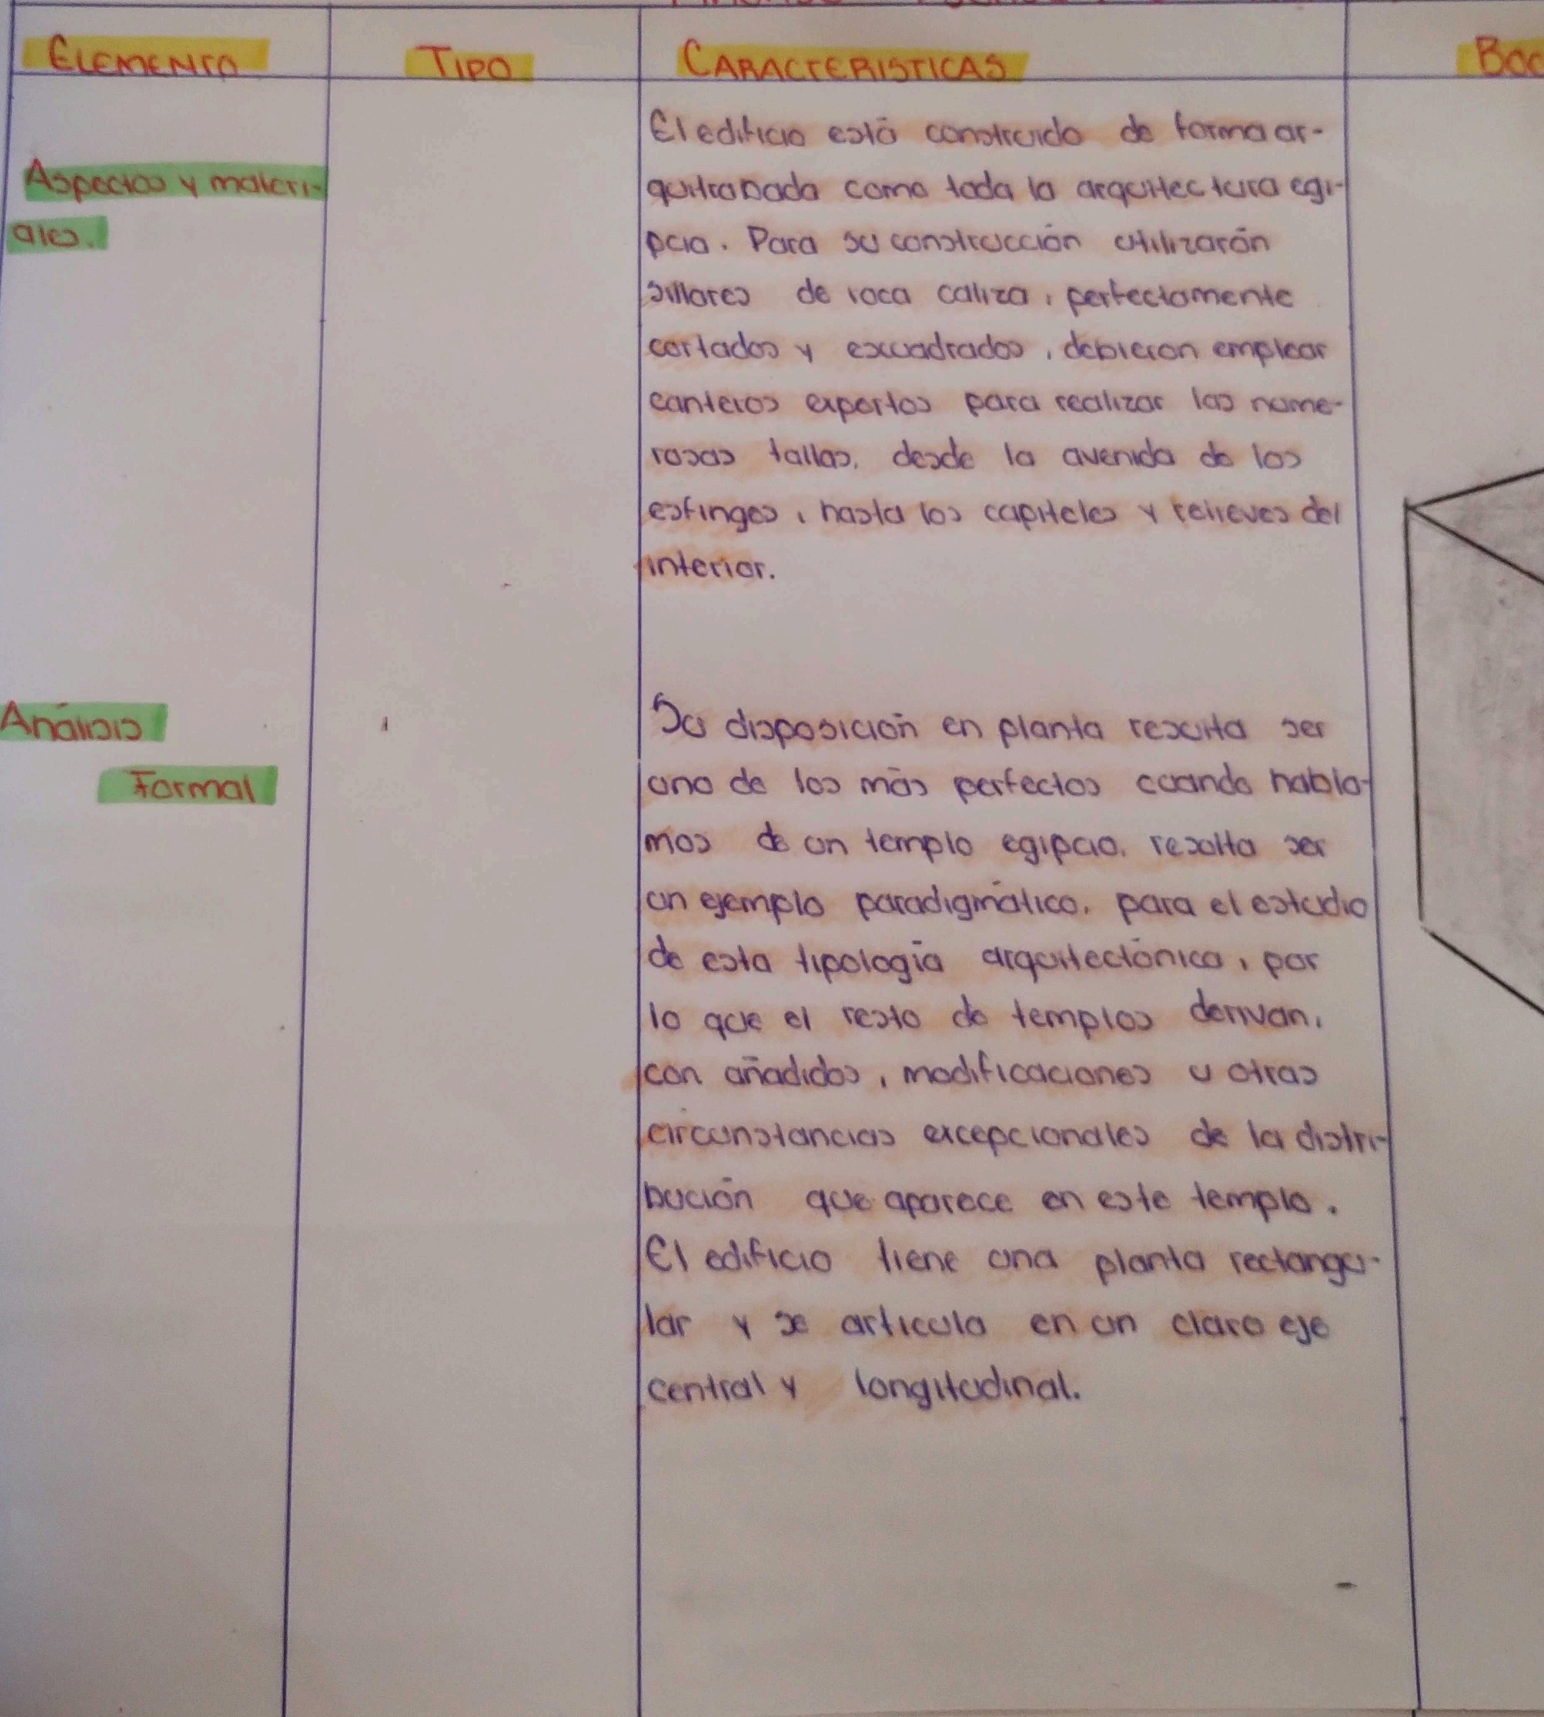 ELEMENTO TIPO CARACTERISTICAS
Aspectos y materi-
ales.
El edificio está construido de forma ar-
quitrabada como toda la arquitectura egi-
pcia. Para su construcción utilizarón
sillares de roca caliza, perfectamente
cortados y escuadrados, debieron emplear
canteros expertos para realizar las nume-
rosas tallas, desde la avenida de los
esfinges, hasta los capiteles y relieves del
interior.
Análisis
Formal
Su disposición en planta resulta ser
uno de los más perfectos cuando habla-
mos de un templo egipcio, resulta ser
un ejemplo paradigmático, para el estudio
de esta tipología arquitectónica, por
lo que el resto de templos derivan,
con añadidos, modificaciones u otras
circunstancias excepcionales de la distri-
bución que aparece en este templo.
El edificio tiene una planta rectangu-
lar y se articula en un claro eje
central y longitudinal.